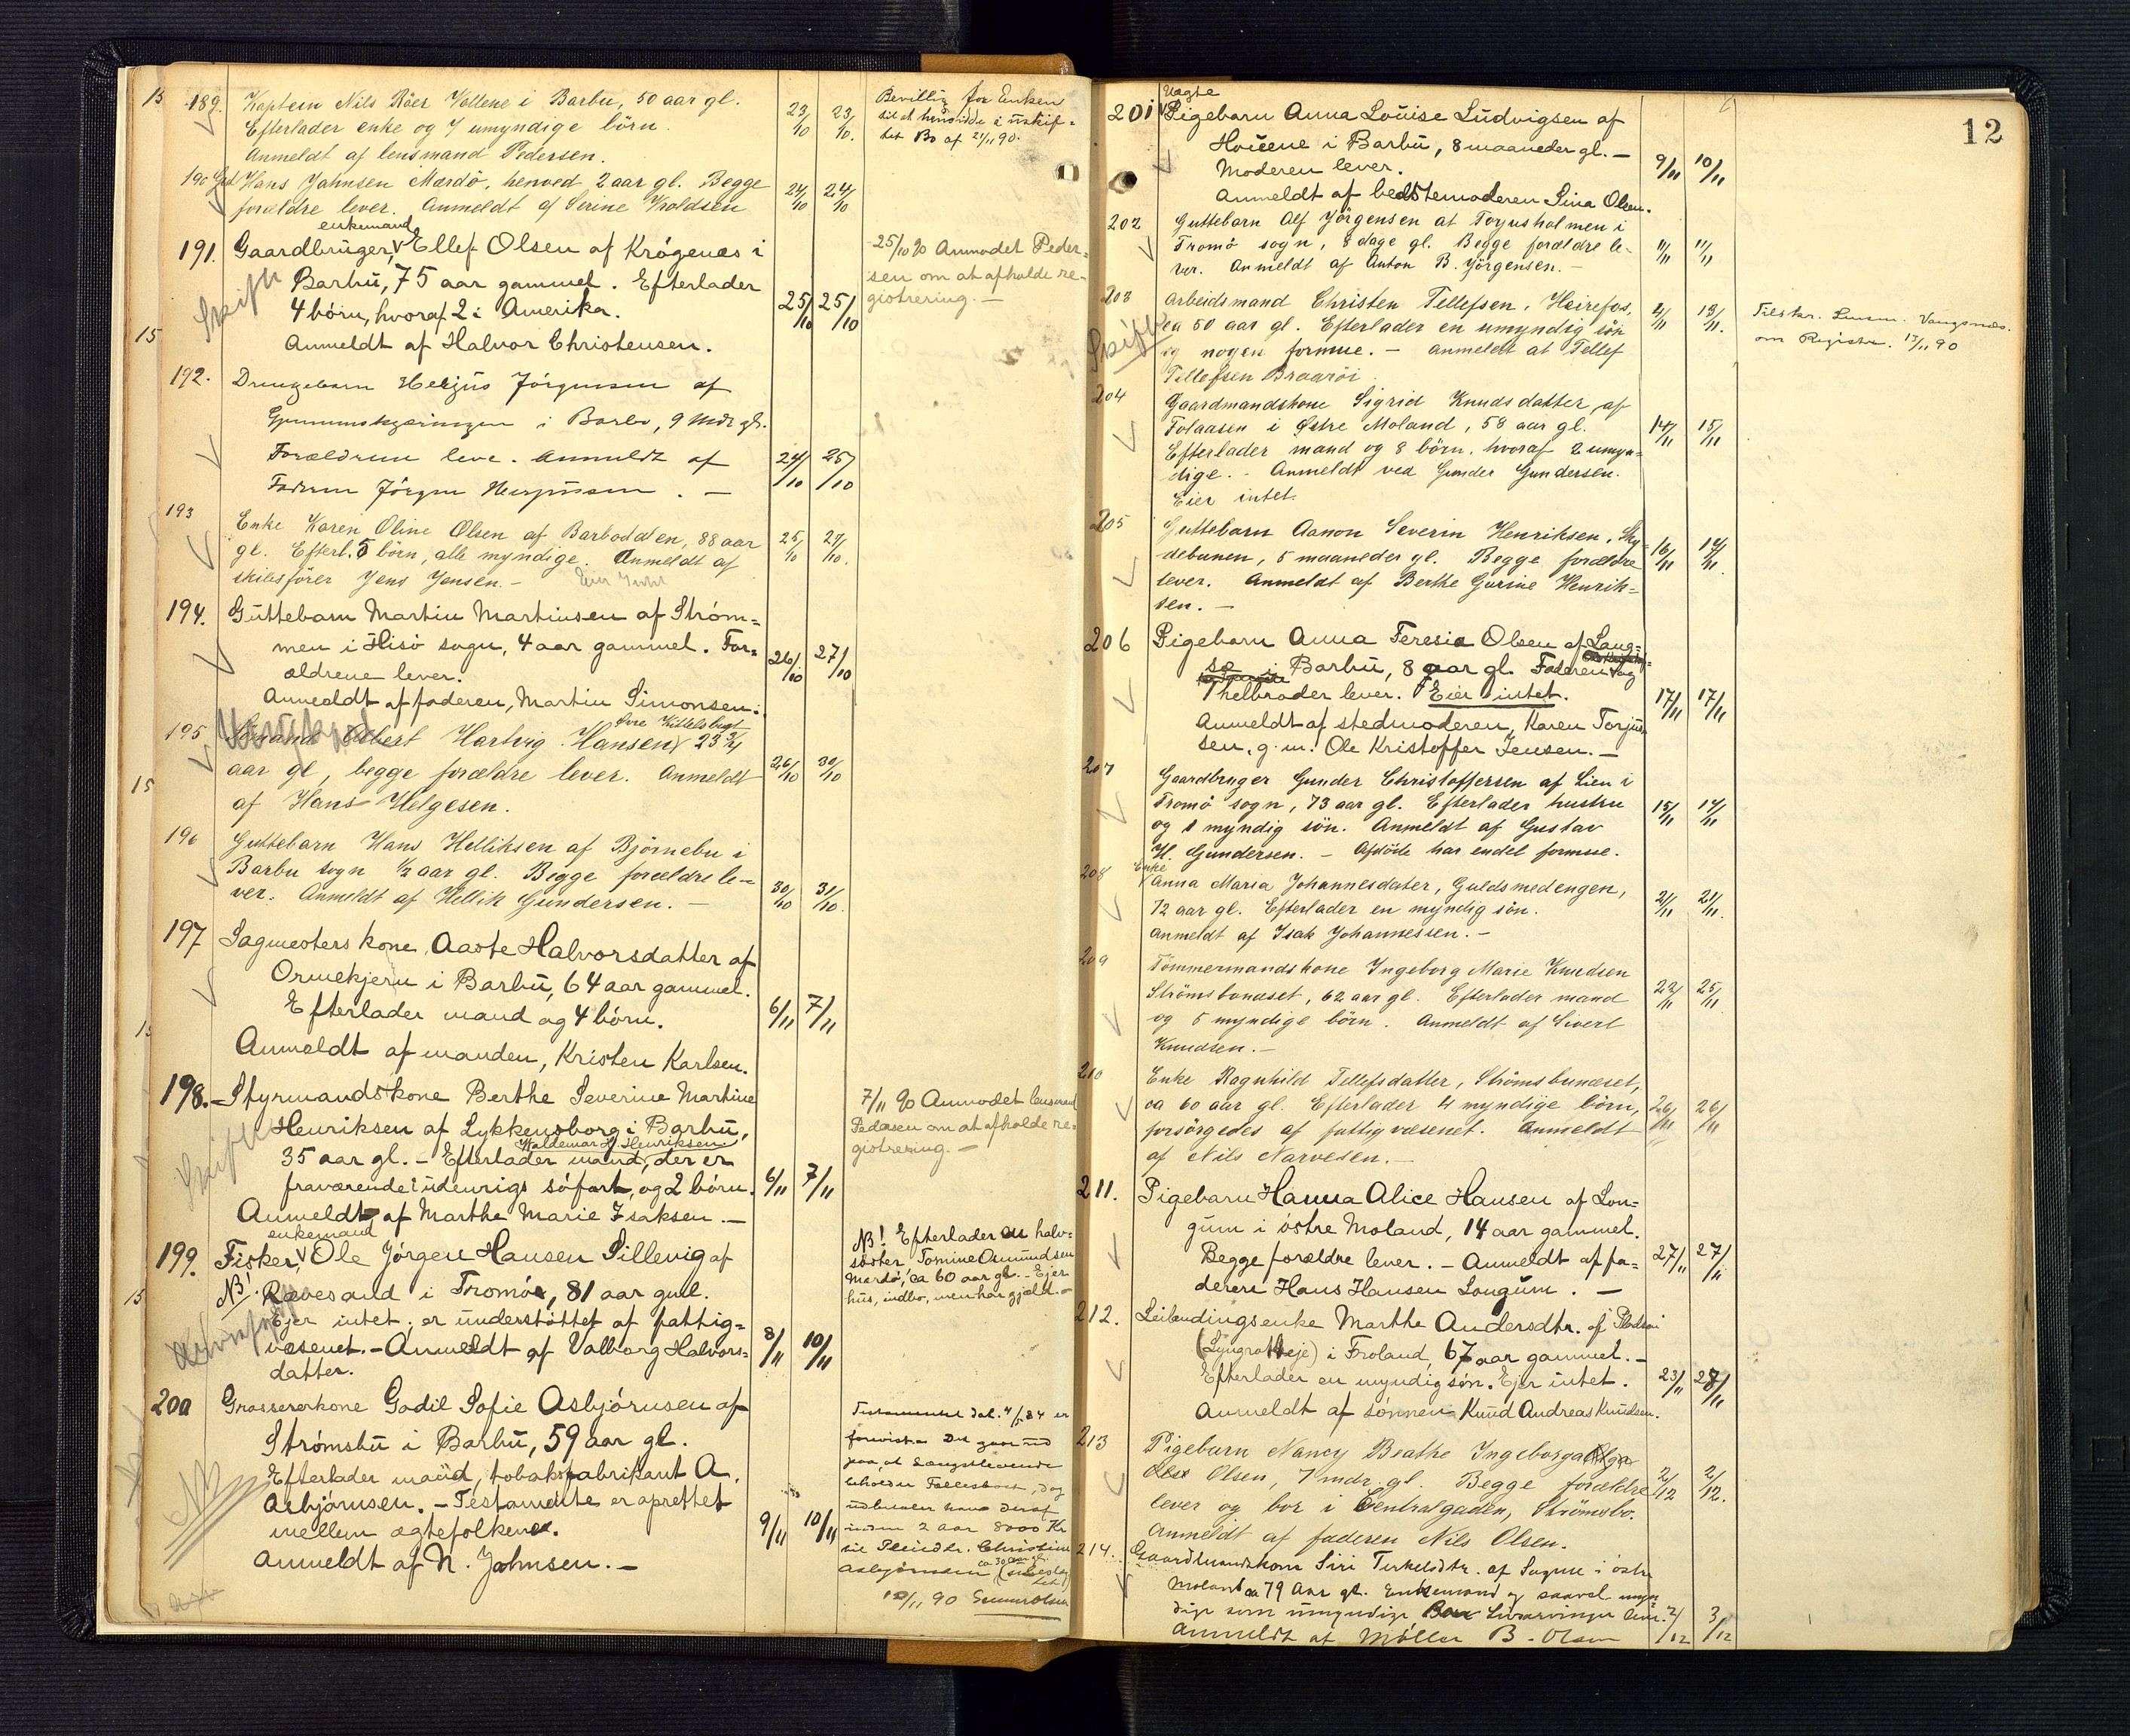 189. Kaptein Nils Röer Vollene i Barbu, 50 aar gl.
Efterlader enke og 7 umyndige börn.
Anmeldt af lensmand Pedersen.
23/10 23/10.
Bevillig for Enken
til at hensidde i uskif-
tet Bo af 21/11 90.
190 Hans Jahnsen Mærdö, henved 2 aar gl. Begge
forældre lever. Anmeldt af Serine Kroldsen
24/10 24/10
enkemand
191. Gaardbruger Ellef Olsen af Krøgenæs i
Barbu, 75 aar gammel. Efterlader
4 börn, hvoraf 2 i Amerika.
Anmeldt af Halvor Christensen.
Skifte
25/10 25/10
25/10 90 Anmodet Peder-
sen om at afholde re-
gistrering. —
15
192. Drengebarn Herjus Jörgensen af
i Barbu, 9 Mdr gl.
Forældrene leve. Anmeldt af
Faderen Jörgen Herjusen. —
24/10 25/10
193 Enke Karen Oline Olsen af Barbodden, 88 aar
gl. Efterl. 5 börn, alle myndige. Anmeldt af
skibsförer Jens Jensen. — Eier Intet
25/10 27/10.
194. Guttebarn Martin Martinsen af Ström=
men i Hisö sogn, 4 aar gammel. For=
ældrene lever.
Anmeldt af faderen, Martin Simonsen.
26/10 27/10
195 Sömand Albert Hartvig Hansen, 23 3/4
aar gl, begge forældre lever. Anmeldt
af Hans Helgesen.
26/10 30/10
15
196 Guttebarn Hans Helliksen af Björnebu i
Barbu sogn 1/2 aar gl. Begge forældre le-
ver. Anmeldt af Hellik Gundersen. —
30/10 31/10.
197 Sagmesters kone Aaste Halvorsdatter af
Ormekjern i Barbu, 64 aar gammel.
Efterlader mand og 4 börn.
Anmeldt af manden, Kristen Karlsen.
6/11 7/11
198. Styrmandskone Berthe Severine Martine
Henriksen af Lykkensborg i Barbu,
Waldemar H. Henriksen
35 aar gl. — Efterlader mand, der er
fraværende i udenrigs söfart, og 2 börn.
Anmeldt af Marthe Marie Isaksen. —
Skifte
6/11 7/11
7/11 90 Anmodet lensmand
Pedersen om at afholde re-
gistrering. —
enkemand
199. Fisker, Ole Jörgen Hansen Sillevig af
NB! Rævesand i Tromö, 81 aar gml.
Ejer intet, er understöttet af fattig=
væsenet. — Anmeldt af Valborg Halvors-
datter.
8/11 10/11
NB! Efterlader en halv-
söster, Tomine Amundsen
Mærdö, ca 60 aar gl. — Ejer
hus, indbo, men har gjæld. —
15
200 Grossererkone Godil Sofie Asbjörnsen af
Strömsbu i Barbu, 59 aar gl.
Efterlader mand, tobaksfabrikant A.
Asbjörnsen. — Testamente er oprettet
mellem ægtefolkene.
Anmeldt af N. Johnsen. —
NB
9/11 10/11
Testamentet dat. 4/5 84 er
forevist. Det gaar ud
paa, at Længstlevende
beholder Fællesboet, dog
udbetaler han deraf
inden 2 aar 8000 Kr
til Pleiedtr. Christine
ca 30 aar gl.
Asbjörnsen
10/11 90
12
Uægte
201 Pigebarn Anna Louise Ludvigsen af
Houene i Barbu, 8 maaneder gl. —
Moderen lever.
Anmeldt af bedstemoderen Sina Olsen.
9/11 10/11
202 Guttebarn Alf Jörgensen at Torjusholmen i
Tromö sogn, 8 dage gl. Begge forældre le-
ver. Anmeldt af Anton B. Jörgensen. —
11/11 11/11
203 Arbeidsmand Christen Tellefsen, Heirefos,
ca 50 aar gl. Efterlader en umyndig sön
og nogen formue. — Anmeldt at Tellef
Tellefsen Braaröi
Skifte
4/11 13/11.
Tilskr. Lensm. Vangsnes.
om Registr. 13/11 90
204 Gaardmandskone Sigrid Knudsdatter af
Tolaasen i Østre Moland, 58 aar gl.
Efterlader mand og 8 börn, hvoraf 2 umyn=
dige. — Anmeldt ved Gunder Gundersen.
Eier intet.
14/11 15/11
205 Guttebarn Aanon Severin Henriksen, Sky-
debanen, 5 maaneder gl. Begge forældre
lever. Anmeldt af Berthe Gurine Henrik=
sen. —
16/11 17/11.
206 Pigebarn Anna Teresia Olsen af Lang=
sæ i Barbu, 8 aar gl. Faderen og
1 helbroder lever. Eier intet.
Anmeldt af stedmoderen, Karen Torjus-
sen, g. m. Ole Kristoffer Jensen. —
17/11 17/11
207 Gaardbruger Gunder Christoffersen af Lien i
Tromö sogn, 73 aar gl. Efterlader hustru
og 1 myndig sön. Anmeldt af Gustav
H. Gundersen. — Afdöde har endel formue.
15/11 17/11
208 Enke
Anna Maria Johannesdater, Guldsmedengen,
72 aar gl. Efterlader en myndig sön.
Anmeldt af Isak Johannessen. —
21/11 21/11.
209 Tömmermandskone Ingeborg Marie Knudsen
Strömsbunæset, 62 aar gl. Efterlader mand
og 5 myndige börn. Anmeldt af Sivert
Knudsen. —
22/11 25/11
210 Enke Ragnhild Tellefsdatter, Strömsbunæset,
ca 60 aar gl. Efterlader 4 myndige börn,
forsörgedes af fattigvæsenet. Anmeldt
af Nils Narvesen. —
26/11 26/11
211. Pigebarn Hanna Alice Hansen af Lon=
gum i östre Moland, 14 aar gammel.
Begge forældre lever. — Anmeldt af fa=
deren Hans Hansen Longum. —
27/11 27/11
212. Leilendingsenke Marthe Andersdtr. af
i Froland, 67 aar gammel. —
Efterlader en myndig sön. Ejer intet.
Anmeldt af sönnen Knud Andreas Knudsen.
23/11 28/11
213 Pigebarn Nancy Beathe Ingeborga Olga
Olsen, 7 mdr. gl. Begge forældre
lever og bor i Centralgaden, Strömsbo.
Anmeldt af faderen Nils Olsen.
2/12 2/12.
214. Gaardmandskone Siri Terkelsdtr. af Sagene i östre
Moland ca 79 Aar gl. Enkemand og saavel myn-
dige som umyndige Livsarvinger lever.
Anmeldt af Möller B. Olsen
2/12 3/12